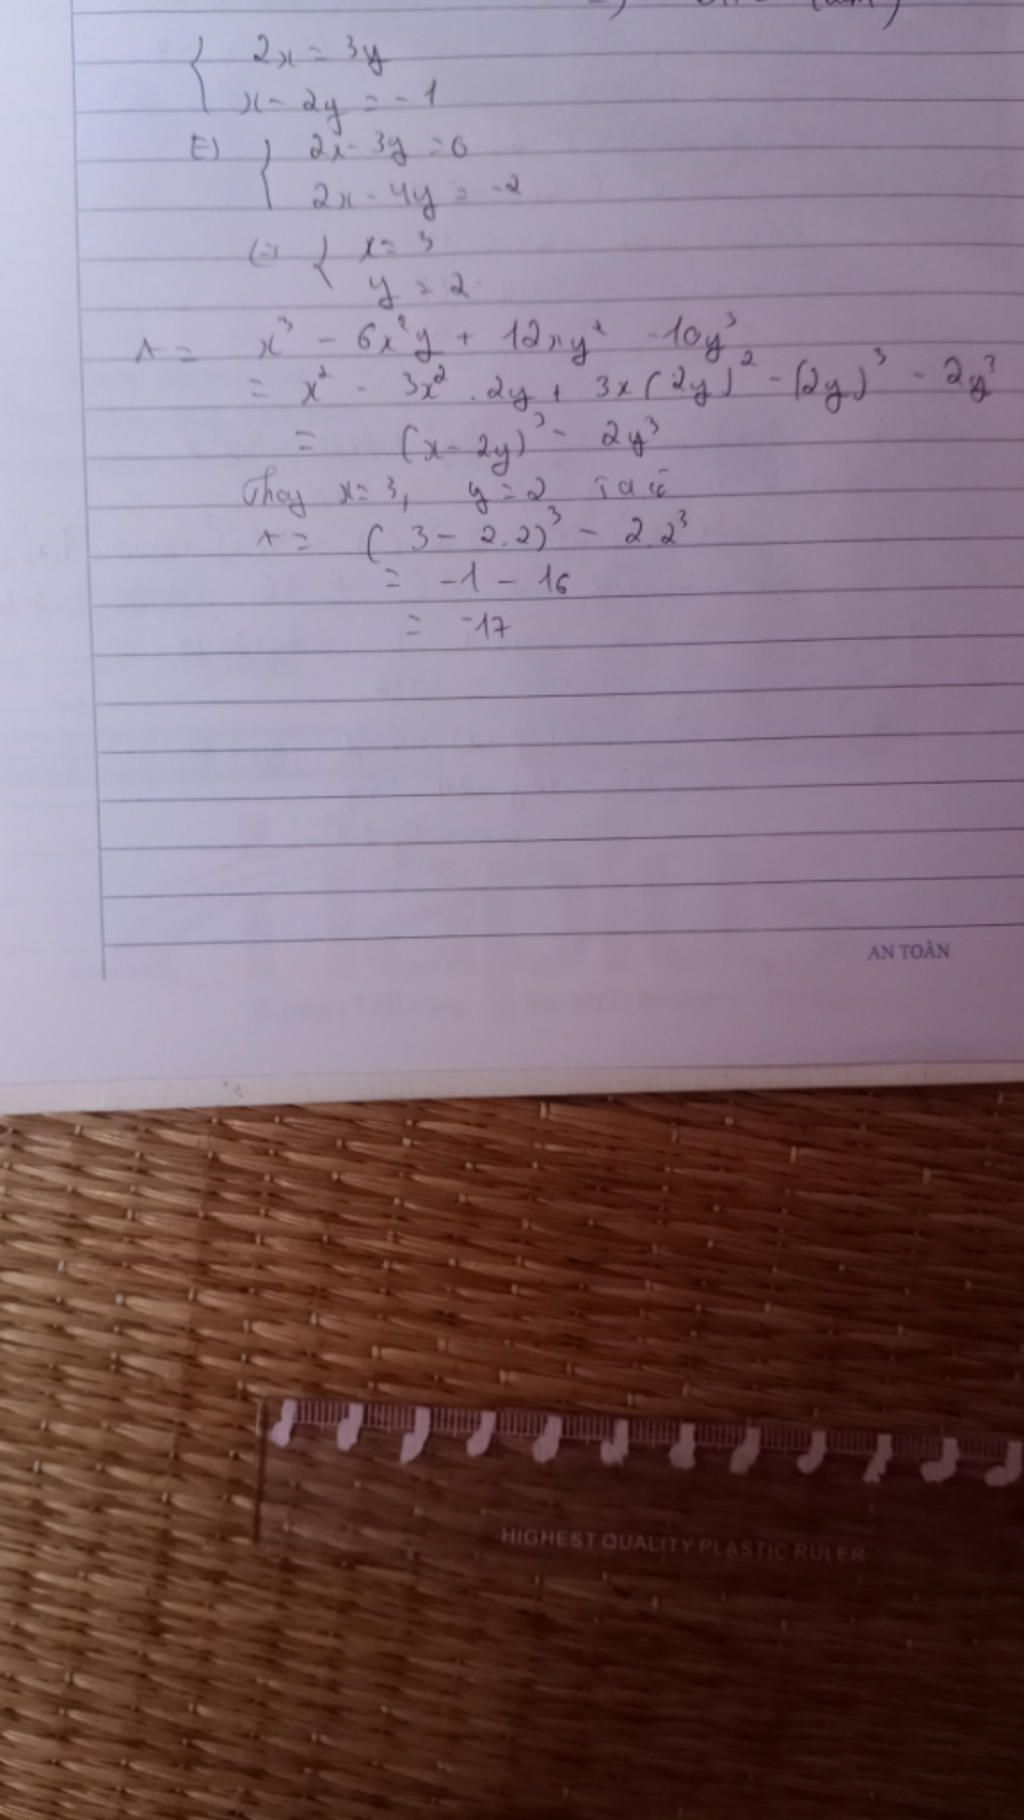 2x = 3y
x - 2y = - 1
2x - 3y = 0
2x - 4y = -2
x = 3
y = 2
A = x³ - 6x²y + 12xy² - 10y³
= x² - 3x² . 2y + 3x (2y)² - (2y)³ - 2y³
= (x - 2y)³ - 2y³
Thay x = 3, y = 2 ta có
A = (3 - 2.2)³ - 2.2³
= -1 - 16
= -17
AN TOÀN
HIGHEST QUALITY PLASTIC RULER